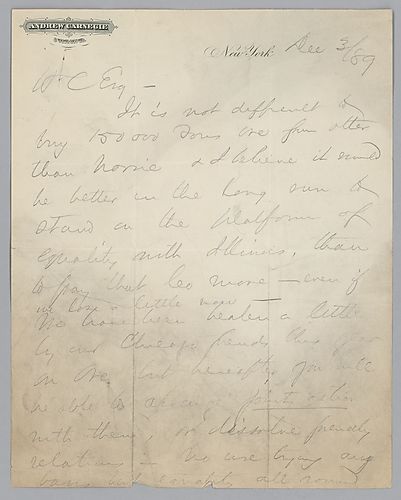 ANDREW CARNEGIE
New York Dec 3/89
W C Esq —
It is not difficult to
buy 150 000 Tons ore from other
than Norrie & I believe it would
be better in the long run to
stand on the platform of
equality with Illinois, than
to pay that Leo more — even if
we lose a little now
We have been beaten a little
by our Chicago friends this year
on Ore, but hereafter you will
be able to joint action
with them, or dissolve friendly
relations — We are trying any
basis but equality all round